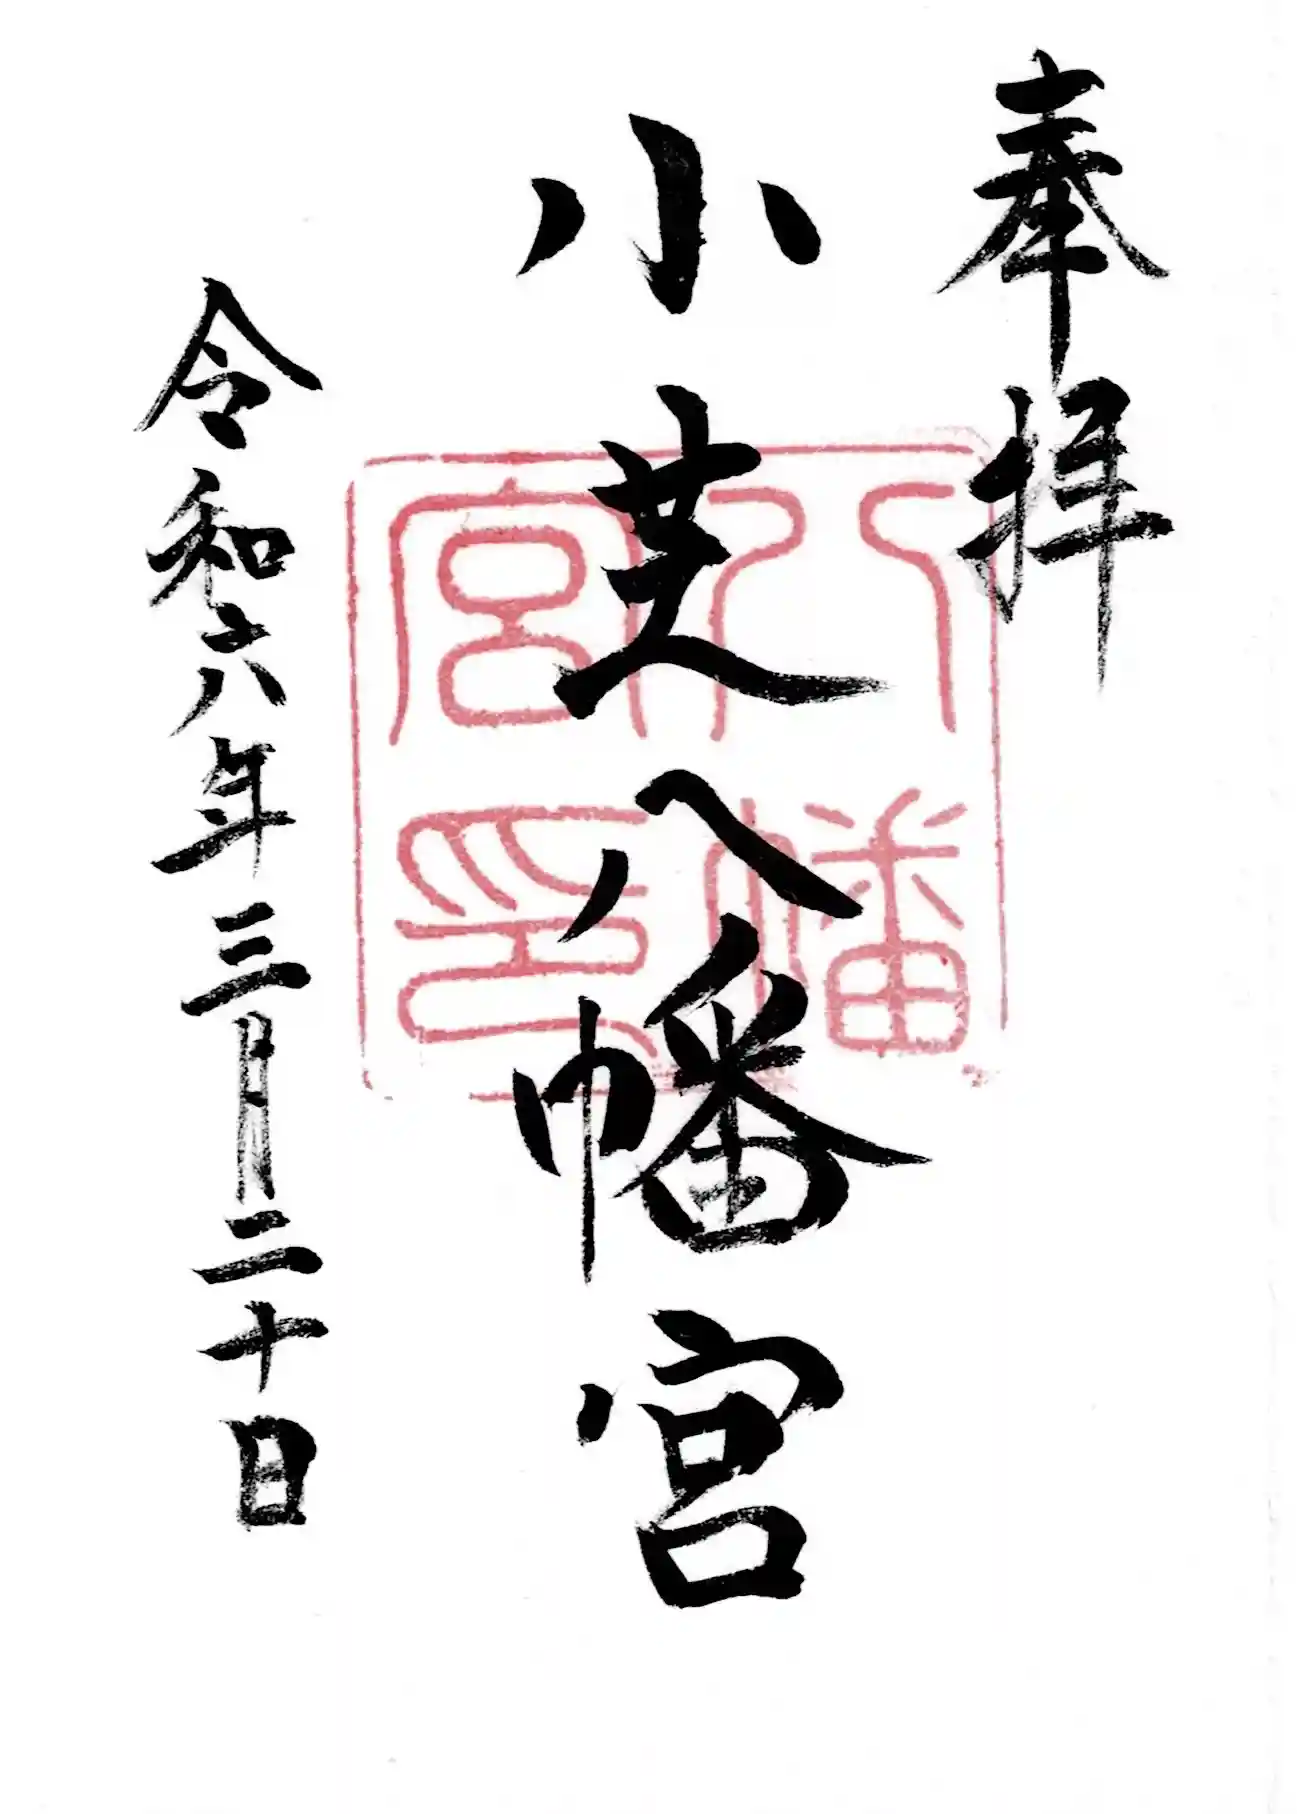 奉拝
小芝八幡宮
八幡
宮印
令和六年三月二十日